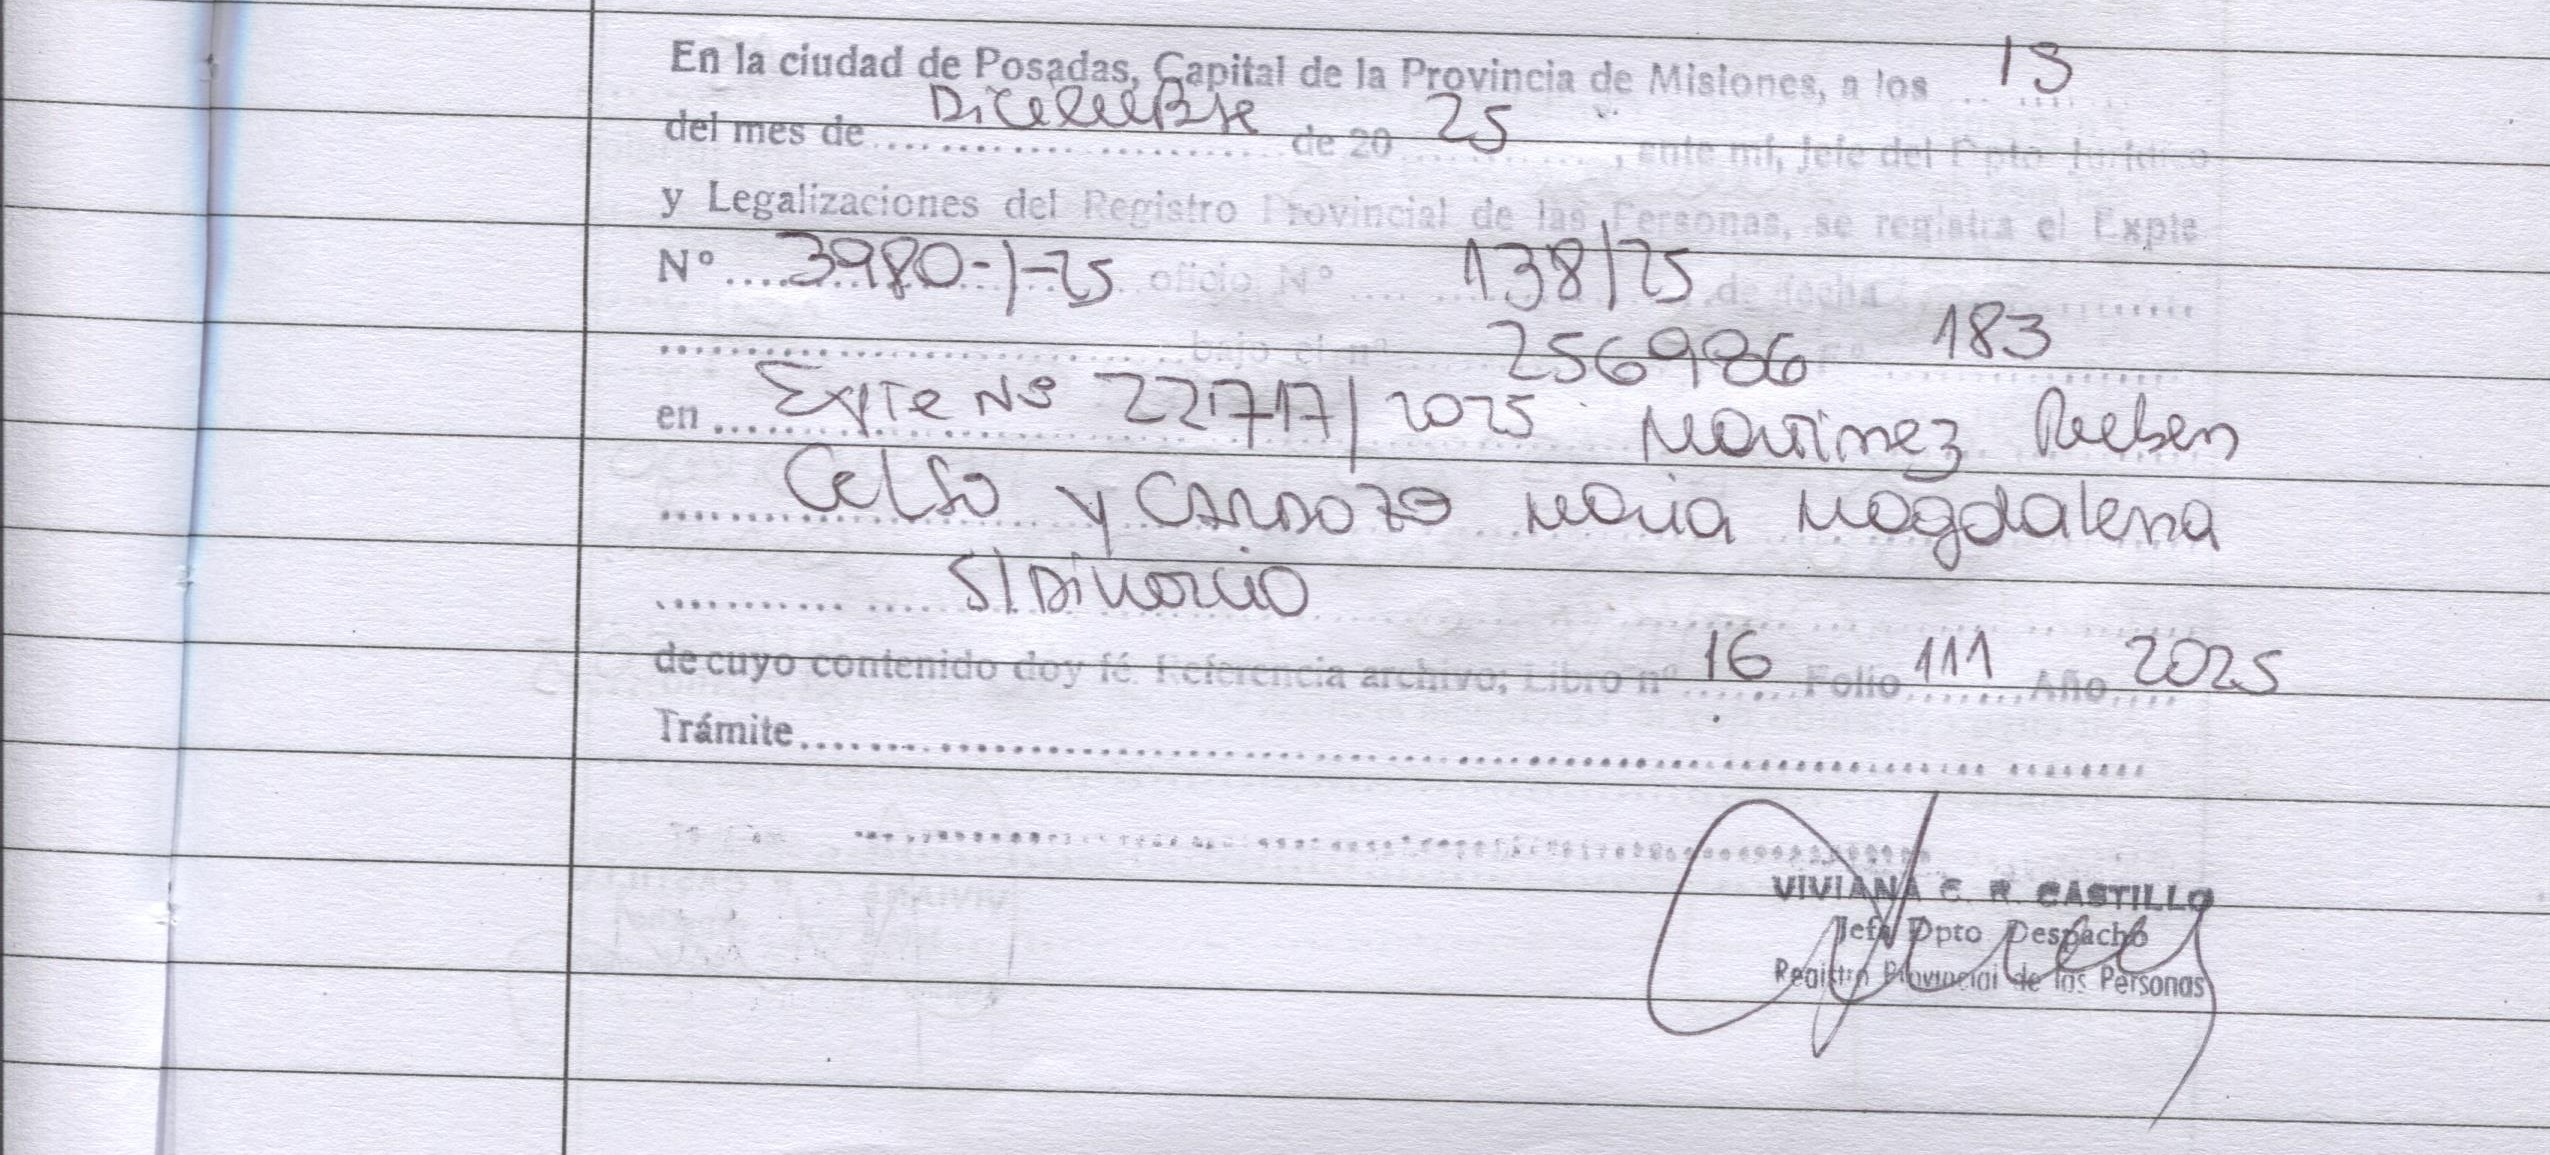 En la ciudad de Posadas, Capital de la Provincia de Misiones, a los 15
del mes de Diciembre de 20 25, ante mí, Jefe del Dpto Jurídico
y Legalizaciones del Registro Provincial de las Personas, se registra el Expte
Nº 3980-1-25 oficio Nº 138/25 de fecha
bajo el nº 256986 183
en Expte Nº 22717/2025 Martinez Ruben
Celso y CARDOZO Maria Magdalena
S/Divorcio
de cuyo contenido doy fé. Referencia archivo; Libro nº 16 Folio 111 Año 2025
Trámite
VIVIANA C. R. CASTILLO
Jefa Dpto Despacho
Registro Provincial de las Personas